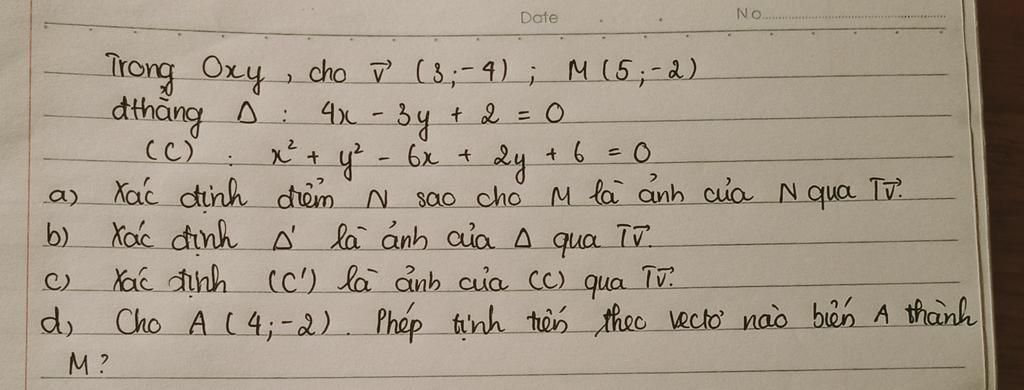 Date . . No
Trong Oxy, cho v⃗ (3;-4); M(5;-2)
đthẳng Δ : 4x - 3y + 2 = 0
(C) : x² + y² - 6x + 2y + 6 = 0
a) Xác định điểm N sao cho M là ảnh của N qua Tv⃗.
b) Xác định Δ' là ảnh của Δ qua Tv⃗.
c) Xác định (C') là ảnh của (C) qua Tv⃗.
d) Cho A(4;-2). Phép tịnh tiến theo vectơ nào biến A thành
M?